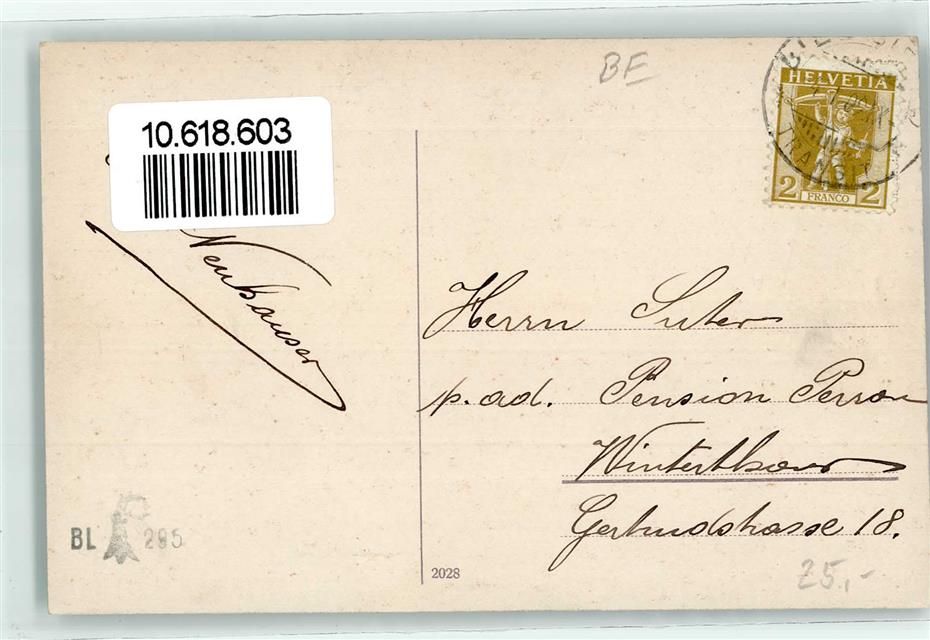 BE
10.618.603
HELVETIA
TRANSIT
2 FRANCO 2
Neuhauser
Herrn Suter
p. ad. Pension Perron
Winterthour
Gertrudstrasse 18.
BL 295
2028
25.-